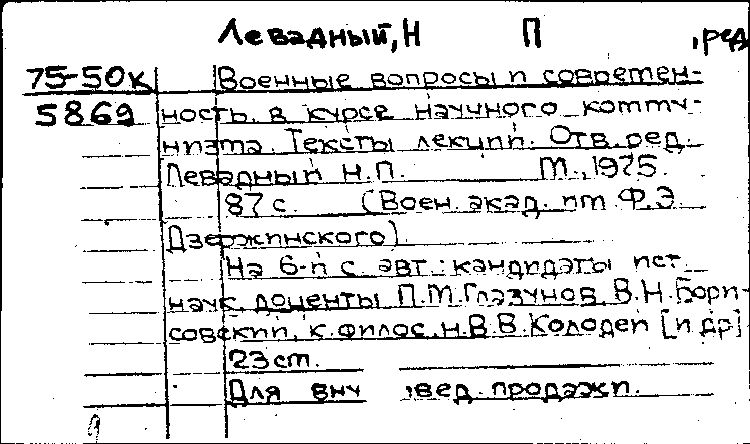 Левадный, Н П , ред
75-50к Военные вопросы и современ-
5869 ность в курсе научного комму-
низма. Тексты лекций. Отв. ред.
Левадный Н.П. М., 1975.
87 с. (Воен. акад. им. Ф.Э.
Дзержинского).
На 6-й с. авт.: кандидаты ист.
наук, доценты П.М.Глазунов, В.Н.Бори-
совский, к.филос.н.В.В.Колодей [и др]
23 см.
Для вну .вед. продажи.